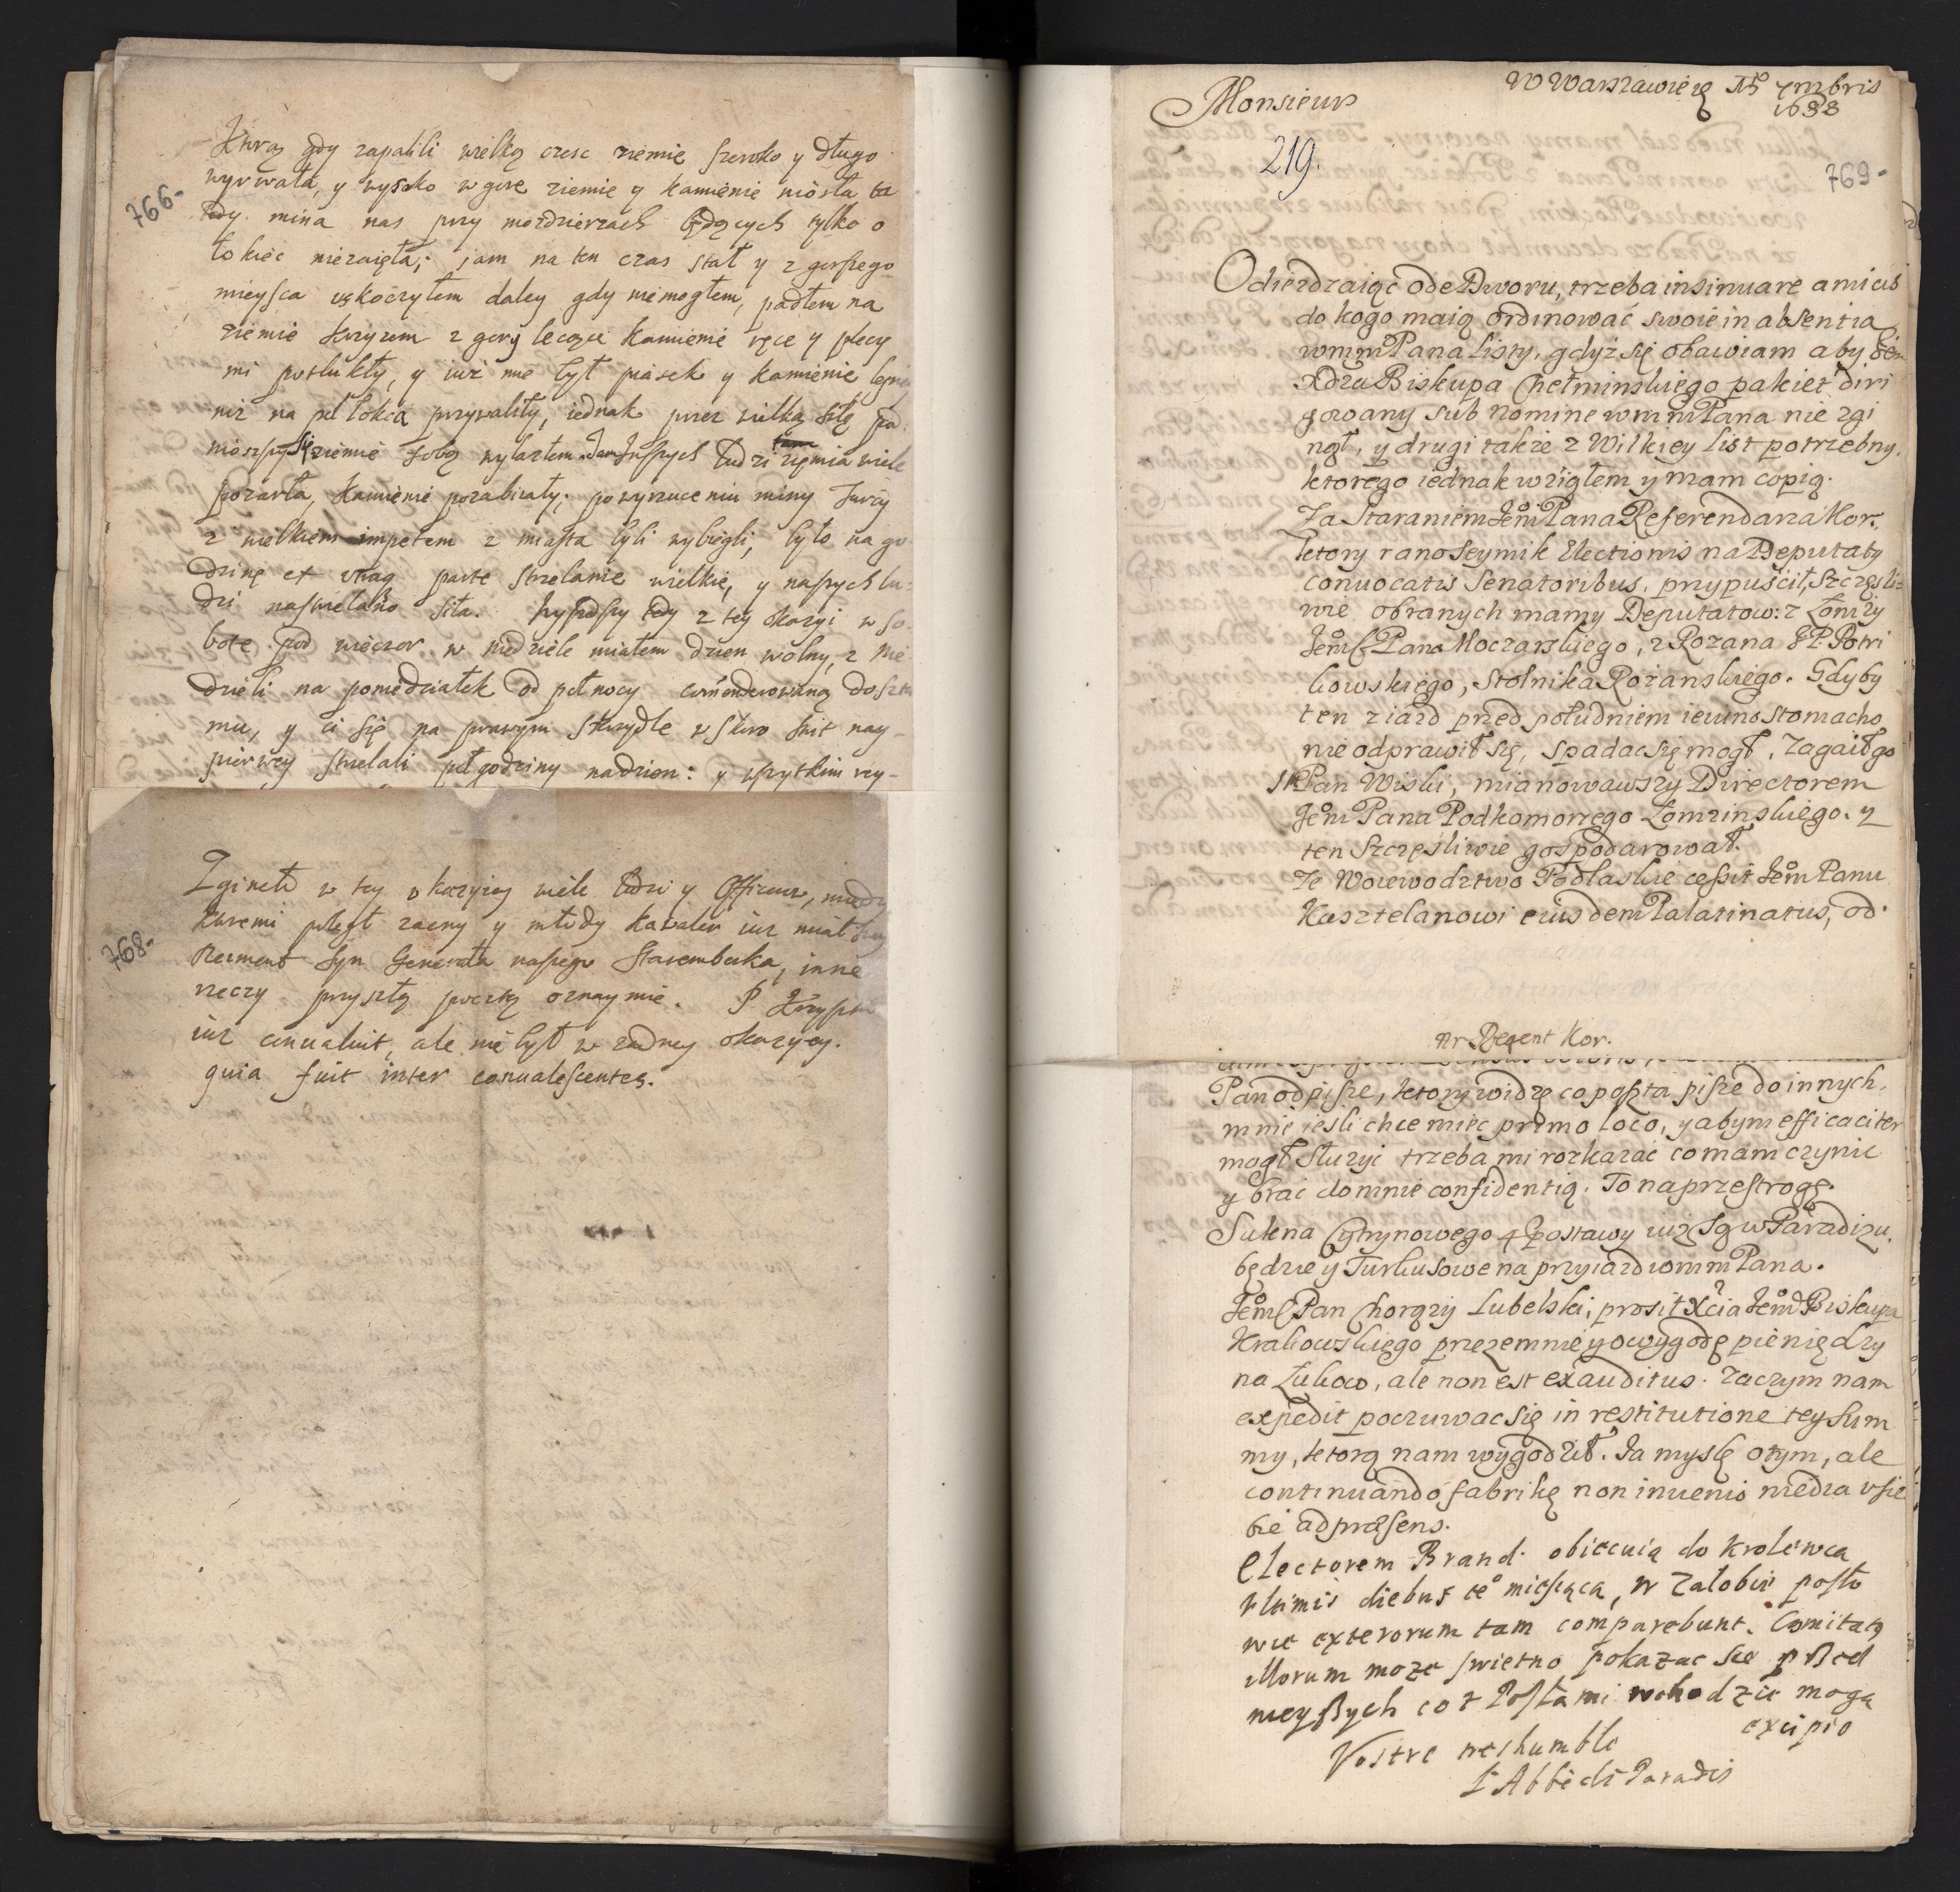 766-
Ktorą gdy zapalili wielką czesc ziemie szeroko y długo
wyrwała, y wysoko w gore ziemie y kamienie niosła ta
tedy mina nas przy mozdzierzach będących tylko o
łokiec niezaięła; jam na ten czas stał y z gorszego
mieysca uskoczyłem daley gdy niemogłem, padłem na
ziemie krzyzem z gory lecące kamienie ręce y plecy
mi potłukły, y iuz mie był piasek y kamienie
niz na puł łokcia przywaliły, iednak przez wielką siłę
ziemie sobą wylazłem. Inszych ludzi ziemia wiele
pozarła, kamienie pozabiiały; po wyrzuceniu miny Turcy
z wielkiem impetem z miasta byli wybiegli, było na go
dzinę et utraq parte strzelanie wielkie, y naszych lu-
dzi nastrzelano siła. Wyszedszy tedy z tey okazyi w so-
bote pod wieczor w niedziele miałem dzien wolny, z nie
dzieli na poniedziałek od pułnocy comenderowaną do sztu
mu, y ci się na prawym skrzydle
pierwey strzelali puł godziny na dzien: y wszytkim rzy-
768-
Zgineło w tey okazyiey wiele ludzi y Officerow, miedzy
ktoremi poległ zacny y młody kawaler iuz miał
Regiment syn Generała naszego Starembeka, inne
rzeczy przyszłą pocztą oznaymie. P
iuz conualuit, ale nie był w zadney okazyey.
quia fuit inter conualescentes.
Monsieur
W Warszawie 15 7mbris
1688
219.
769-
Odiezdzaiąc ode Dworu, trzeba insinuare amicis
do kogo maią ordinować swoie in absentia
wmm Pana listy, gdyż się obawiam aby Jem
Xdza Biskupa Chełminskiego pakiet diri
gowany sub nomine wmm Pana nie zgi
nął, y drugi także z Wilkiey list potrzebny,
ktorego iednak wziąłem y mam copią.
Za Staraniem Jem Pana Referendarza Kor.
ktory rano Seymik Electionis na Deputaty
conuocatis Senatoribus, przypuścił, szczęsli-
wie obranych mamy Deputatow: z Łomży
Jem Pana Moczarskiego, z Rozana J P Potri
kowskiego, Stolnika Rożanskiego. Gdyby
ten ziazd przed południem ieiuno stomacho
nie odprawił się, spadac się mogł. Zagaił go
Pan Wiski, mianowawszy Directorem
Jem Pana Podkomorzego Łomzinskiego. y
ten Szczęśliwie gospodarował.
Ze Woiewodztwo Podlaskie cessit Jem Panu
Kasztelanowi eiusdem Palatinatus, od.
Mr Regent Kor.
Pan odpisze, ktory widzę co poszta pisze do innych.
mnie iesli chce miec primo loco, y abym efficaciter
mogł służyć trzeba mi rozkazać co mam czynic
y brać do mnie confidentią. To na przestrogę.
Sukna Cytrynowego 4 postawy iuż są w Paradizu.
będzie y Turkusowe na przyiazd wmm Pana.
Jem Pan Chorąży Lubelski, prosił Xcia Jem Biskupa
Krakowskiego przezemnie y o wygodę pieniędzy
na Łukow, ale non est exauditus. Zaczym nam
expedit poczuwac się in restitutione tey sum
my, ktorą nam wygodził. Ja myslę o tym, ale
continuando fabrikę non inuenio miedza u sie
bie ad præsens.
Electorem Brand. obiecuią do Krolewca
ultimis diebus te miesiąca, w Załobie posło
wie exterorum tam comparebunt. Comitatq
illorum moze swietno pokazac sie przed
nieyszych co z Posłami wchodzic mogą
excipio
Vostre treshumble
L'Abbé de Paradis